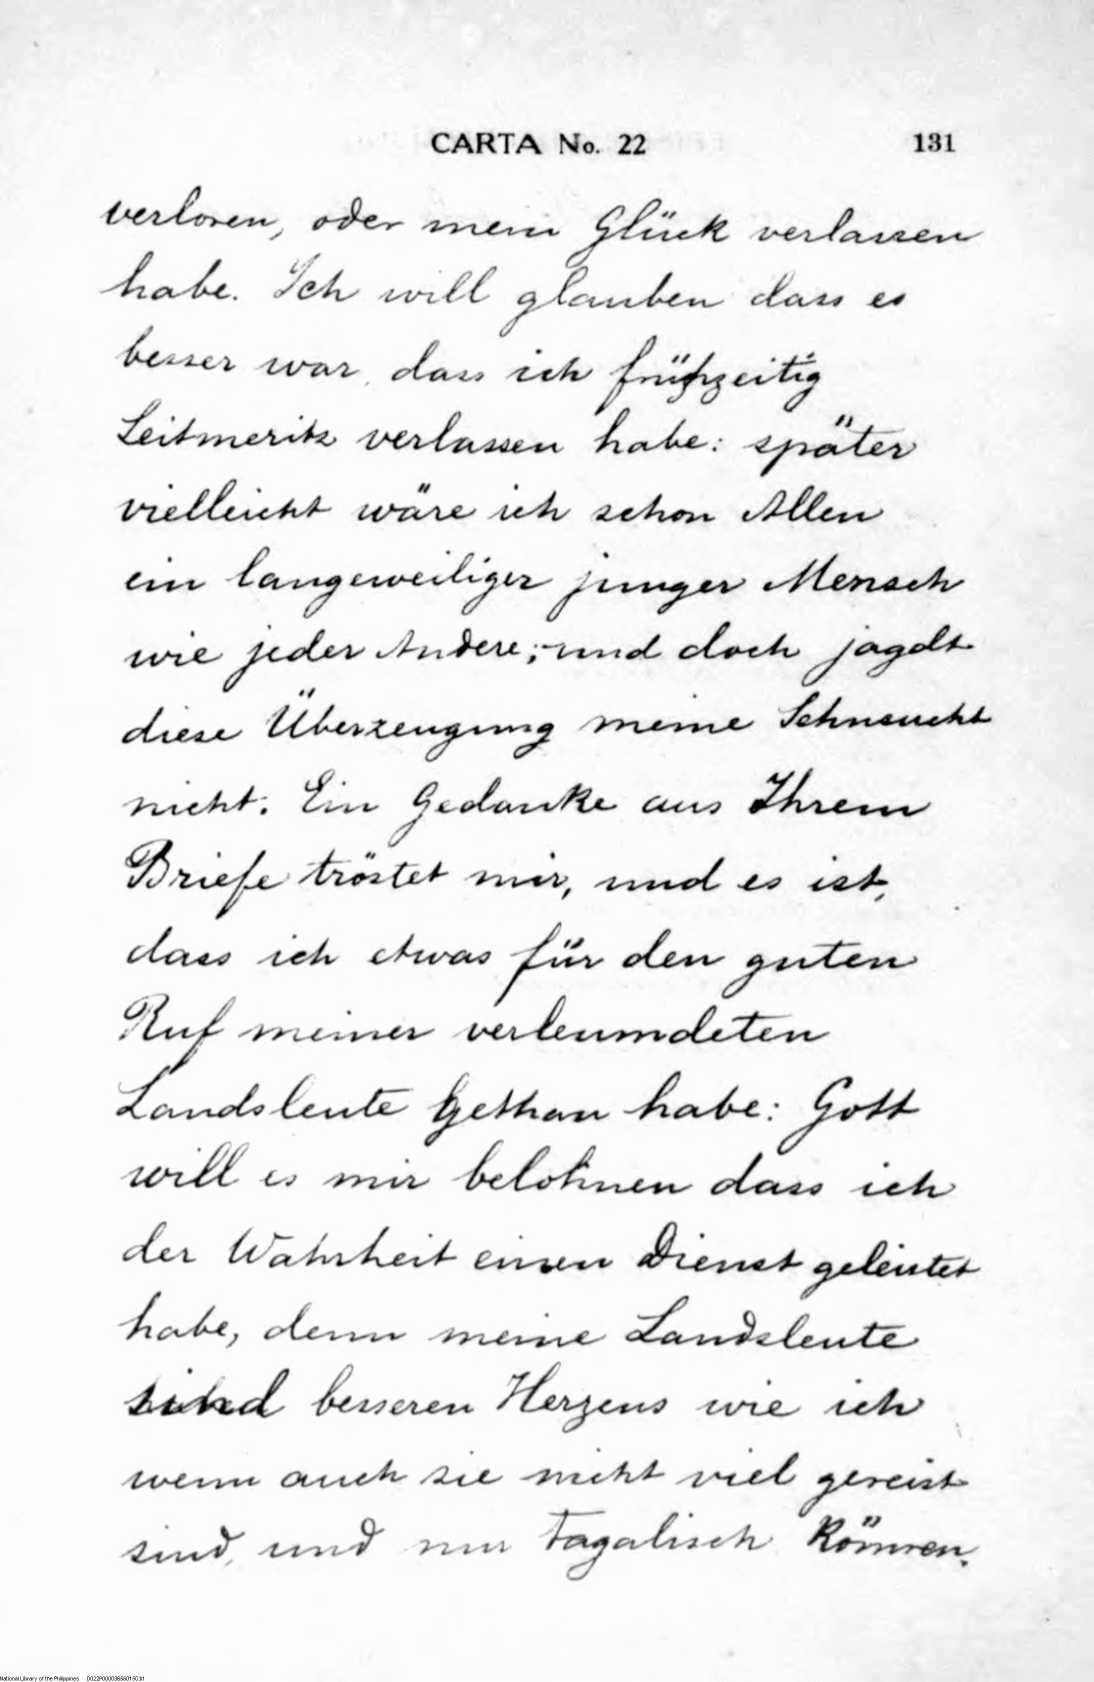 CARTA No. 22 131
verloren, oder mein Glück verlassen
habe. Ich will glauben dass es
besser war, dass ich frühzeitig
Leitmeritz verlassen habe: später
vielleicht wäre ich schon Allen
ein langeweiliger junger Mensch
wie jeder Andere;-und doch jagdt
diese Überzeugung meine Sehnsucht
nicht. Ein Gedanke aus Ihrem
Briefe tröstet mir, und es ist,
dass ich etwas für den guten
Ruf meiner verleumdeten
Landsleute gethan habe: Gott
will es mir belohnen dass ich
der Wahrheit einen Dienst geleistet
habe, denn meine Landsleute
sind besseren Herzens wie ich
wenn auch sie nicht viel gereist
sind, und nur Tagalisch können.
National Library of the Philippines